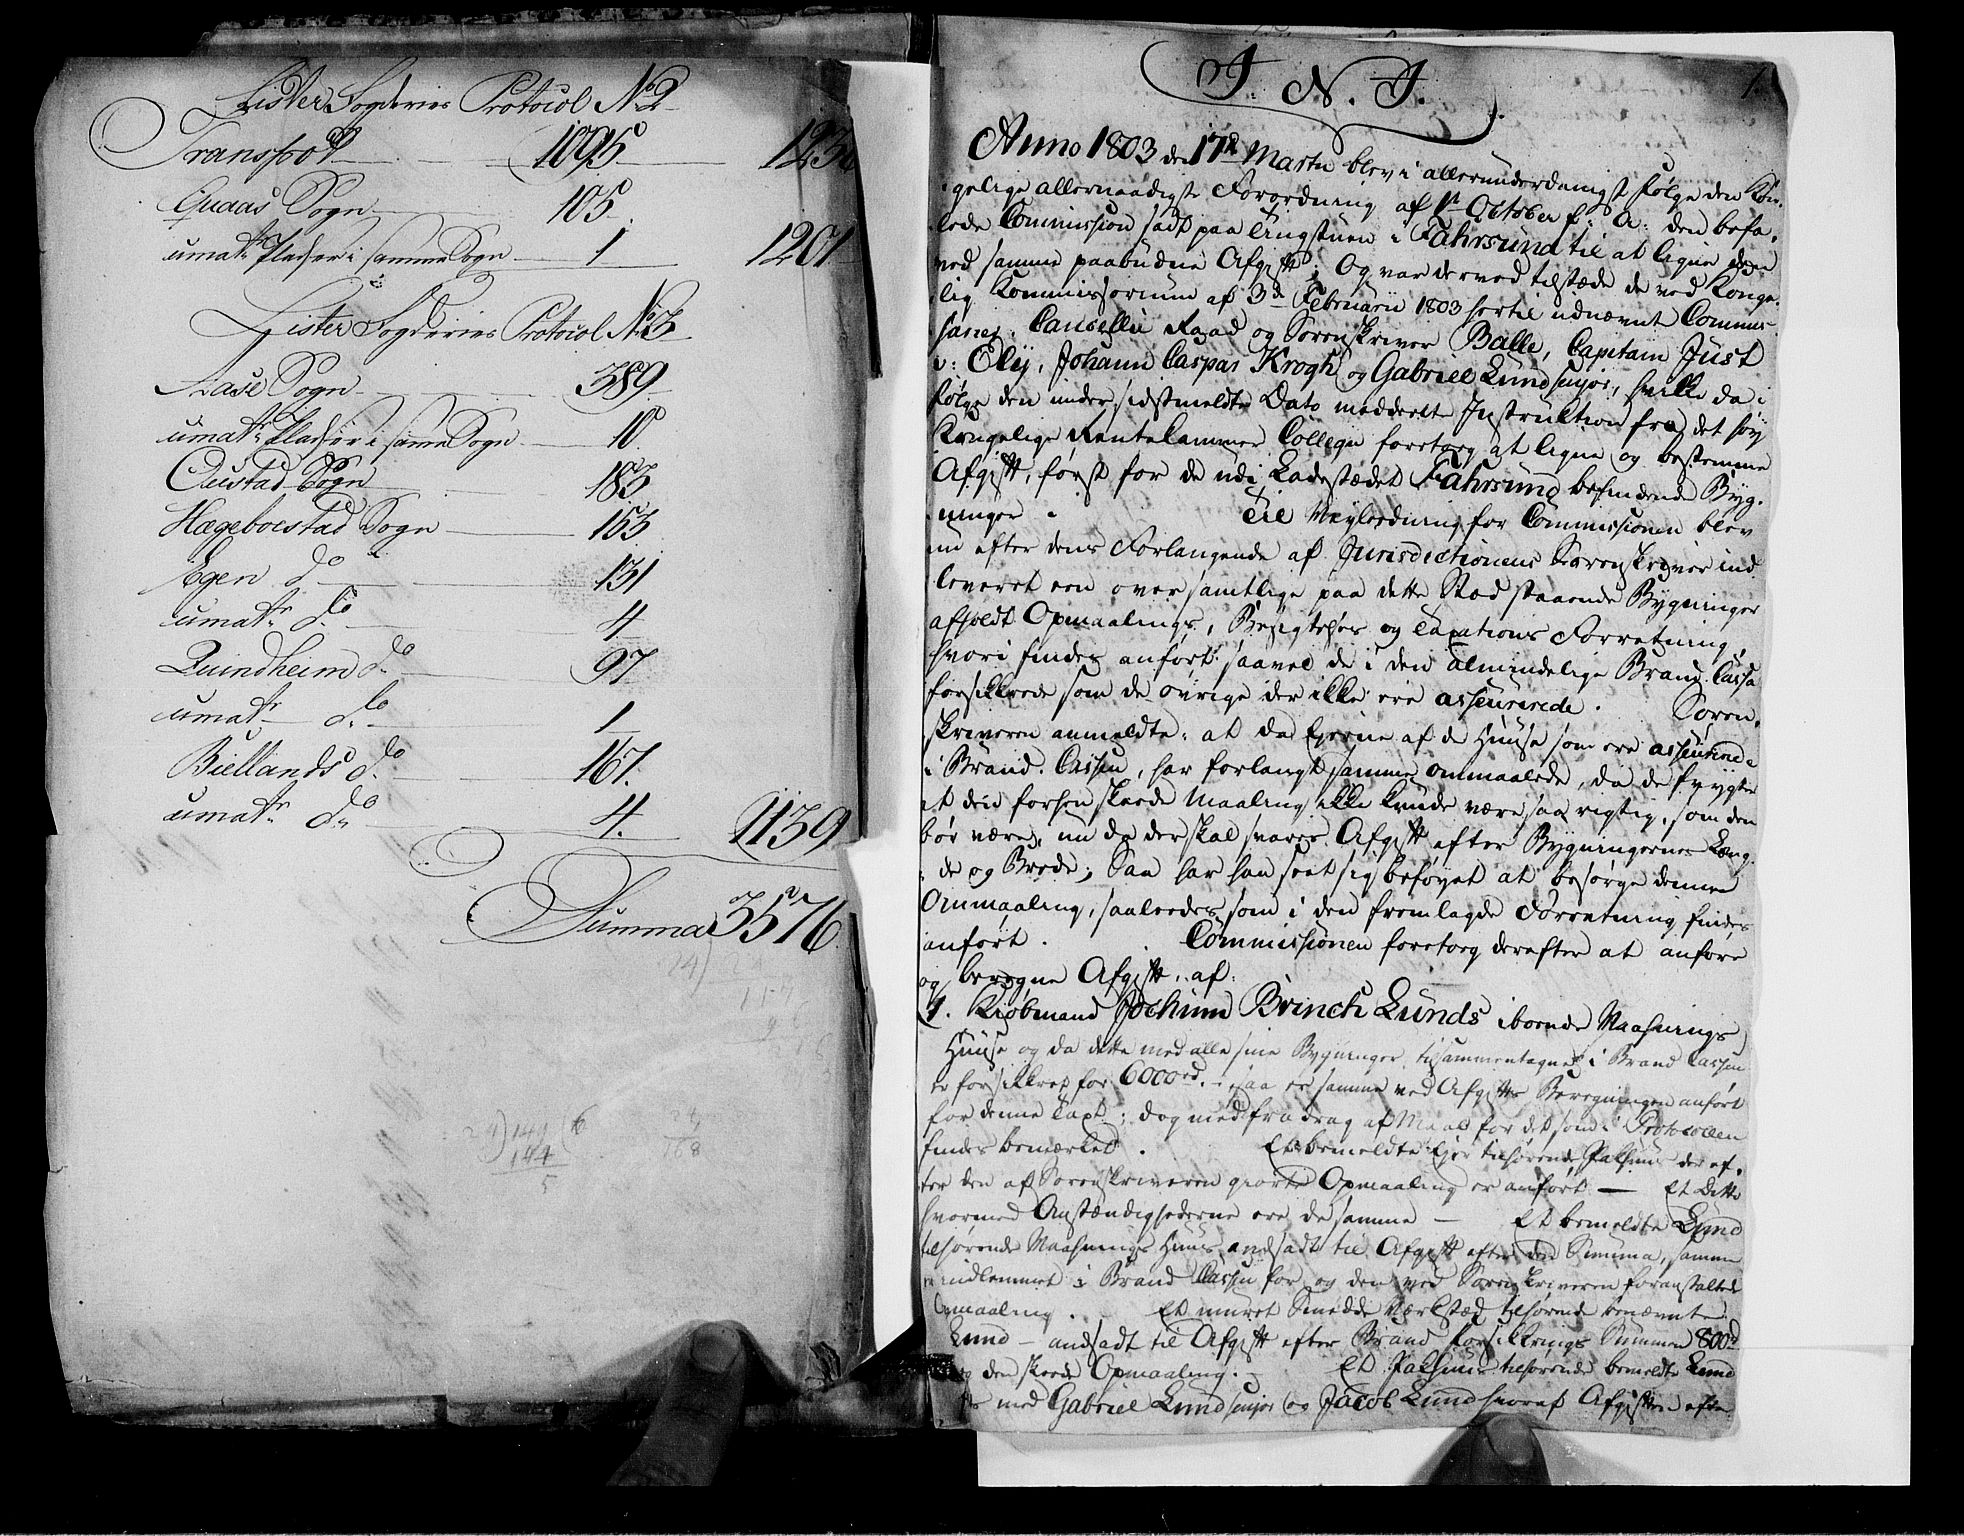 Lister Fogderies Protocol No 2
Transport 1095 1236
Quaas Sogn 105
umatr. Pladser i samme Sogn 1 1201
Lister Fogderies Protocol No 3
Aase Sogn 389
umatr. Pladser i samme Sogn 10
Oustad Sogn 183
Hægeboestad Sogn 153
Egen do 131
umatr. do 4
Quindheim do 97
umatr do 1
Biellands do 167.
umatr. do 4. 1139
Summa 3576
J. N. J. 1.
Anno 1803 den 17de Martii blev i allerunderdanigst følge den Kon-
gelige allernaadigste Forordning af 1te October f: A: den befa-
lede Commission sadt paa Tingstuen i Fahrsund til at ligne den
ved samme paabudne Afgift; Og var derved tilstæde de ved Konge-
lig Kommissorium af 3de Februarii 1803 hertil udnævnte Commis-
sairer: Cancellie Raad og Sorenskriver Balle, Capitain Just
Ely, Johann Caspar Krogh og Gabriel Lund senior, hvilke da i
følge den under sidstmeldte Dato meddeelte Instruktion fra det høy
Kongelige Rentekammer Collegie foretog at ligne og bestemme
Afgift, først for de udi Ladestædet Fahrsund befindende Byg-
ninger. Til Veyledning for Commissionen blev
nu efter dens Forlangende af Jurisdictionens Sorenskriver ind-
leveret een over samtlige paa dette Stæd staaende Bygninger
afholdt Opmaalings, Besigtelses og Taxations Forretning,
hvori findes anført saavel de i den almindelige Brand Cassa
forsikkrede som de øvrige der ikke ere asseurerede. Soren-
skriveren anmeldte: at da Eyerne af de Huuse som ere asseurerede
i Brand Cassen, har forlangt samme ommaalede, da de frygte
at den forhen skeede Maaling ikke kunde være saa rigtig, som den
bør være, nu da der skal svares Afgift efter Bygningernes Læng-
de og Brede; Saa har han seet sig beføyet at besørge denne
Ommaaling, saaledes som i den fremlagde Forretning findes
anført. Commissionen foretog derefter at anføre
og beregne Afgift. af:
1. Kiøbmand Jochum Brinch Lunds iboende Vaahnings
Huuse og da dette med alle sine Bygninger tilsammentagne i Brand Cassen
er forsikkret for 6000rd. saa er samme ved Afgifts Beregningen anført
for denne Taxt; dog med fradrag af Maal for det som i Protocollen
findes bemærket. Et bemeldte Eyer tilhørende Pakhuus der ef-
ter den af Sorenskriveren giorte Opmaaling er anført — Et Ditto
hvormed Omstændighederne ere de samme — Et bemeldte Lund
tilhørende Vaahnings Huus ansadt til Afgift efter den Summa, samme
er indlemmet i Brand Cassen for og den ved Sorenskriveren foranstaltede
Opmaaling. Et muret Smedde Værksted tilhørende benævnte
Lund — ansadt til Afgift efter Brand Forsikkrings Summen 800rd
og den skeede Opmaaling. Et Pakhuus tilhørende bemeldte Lund
med Gabriel Lund senior og Jacob Lund hvoraf Afgiften efter